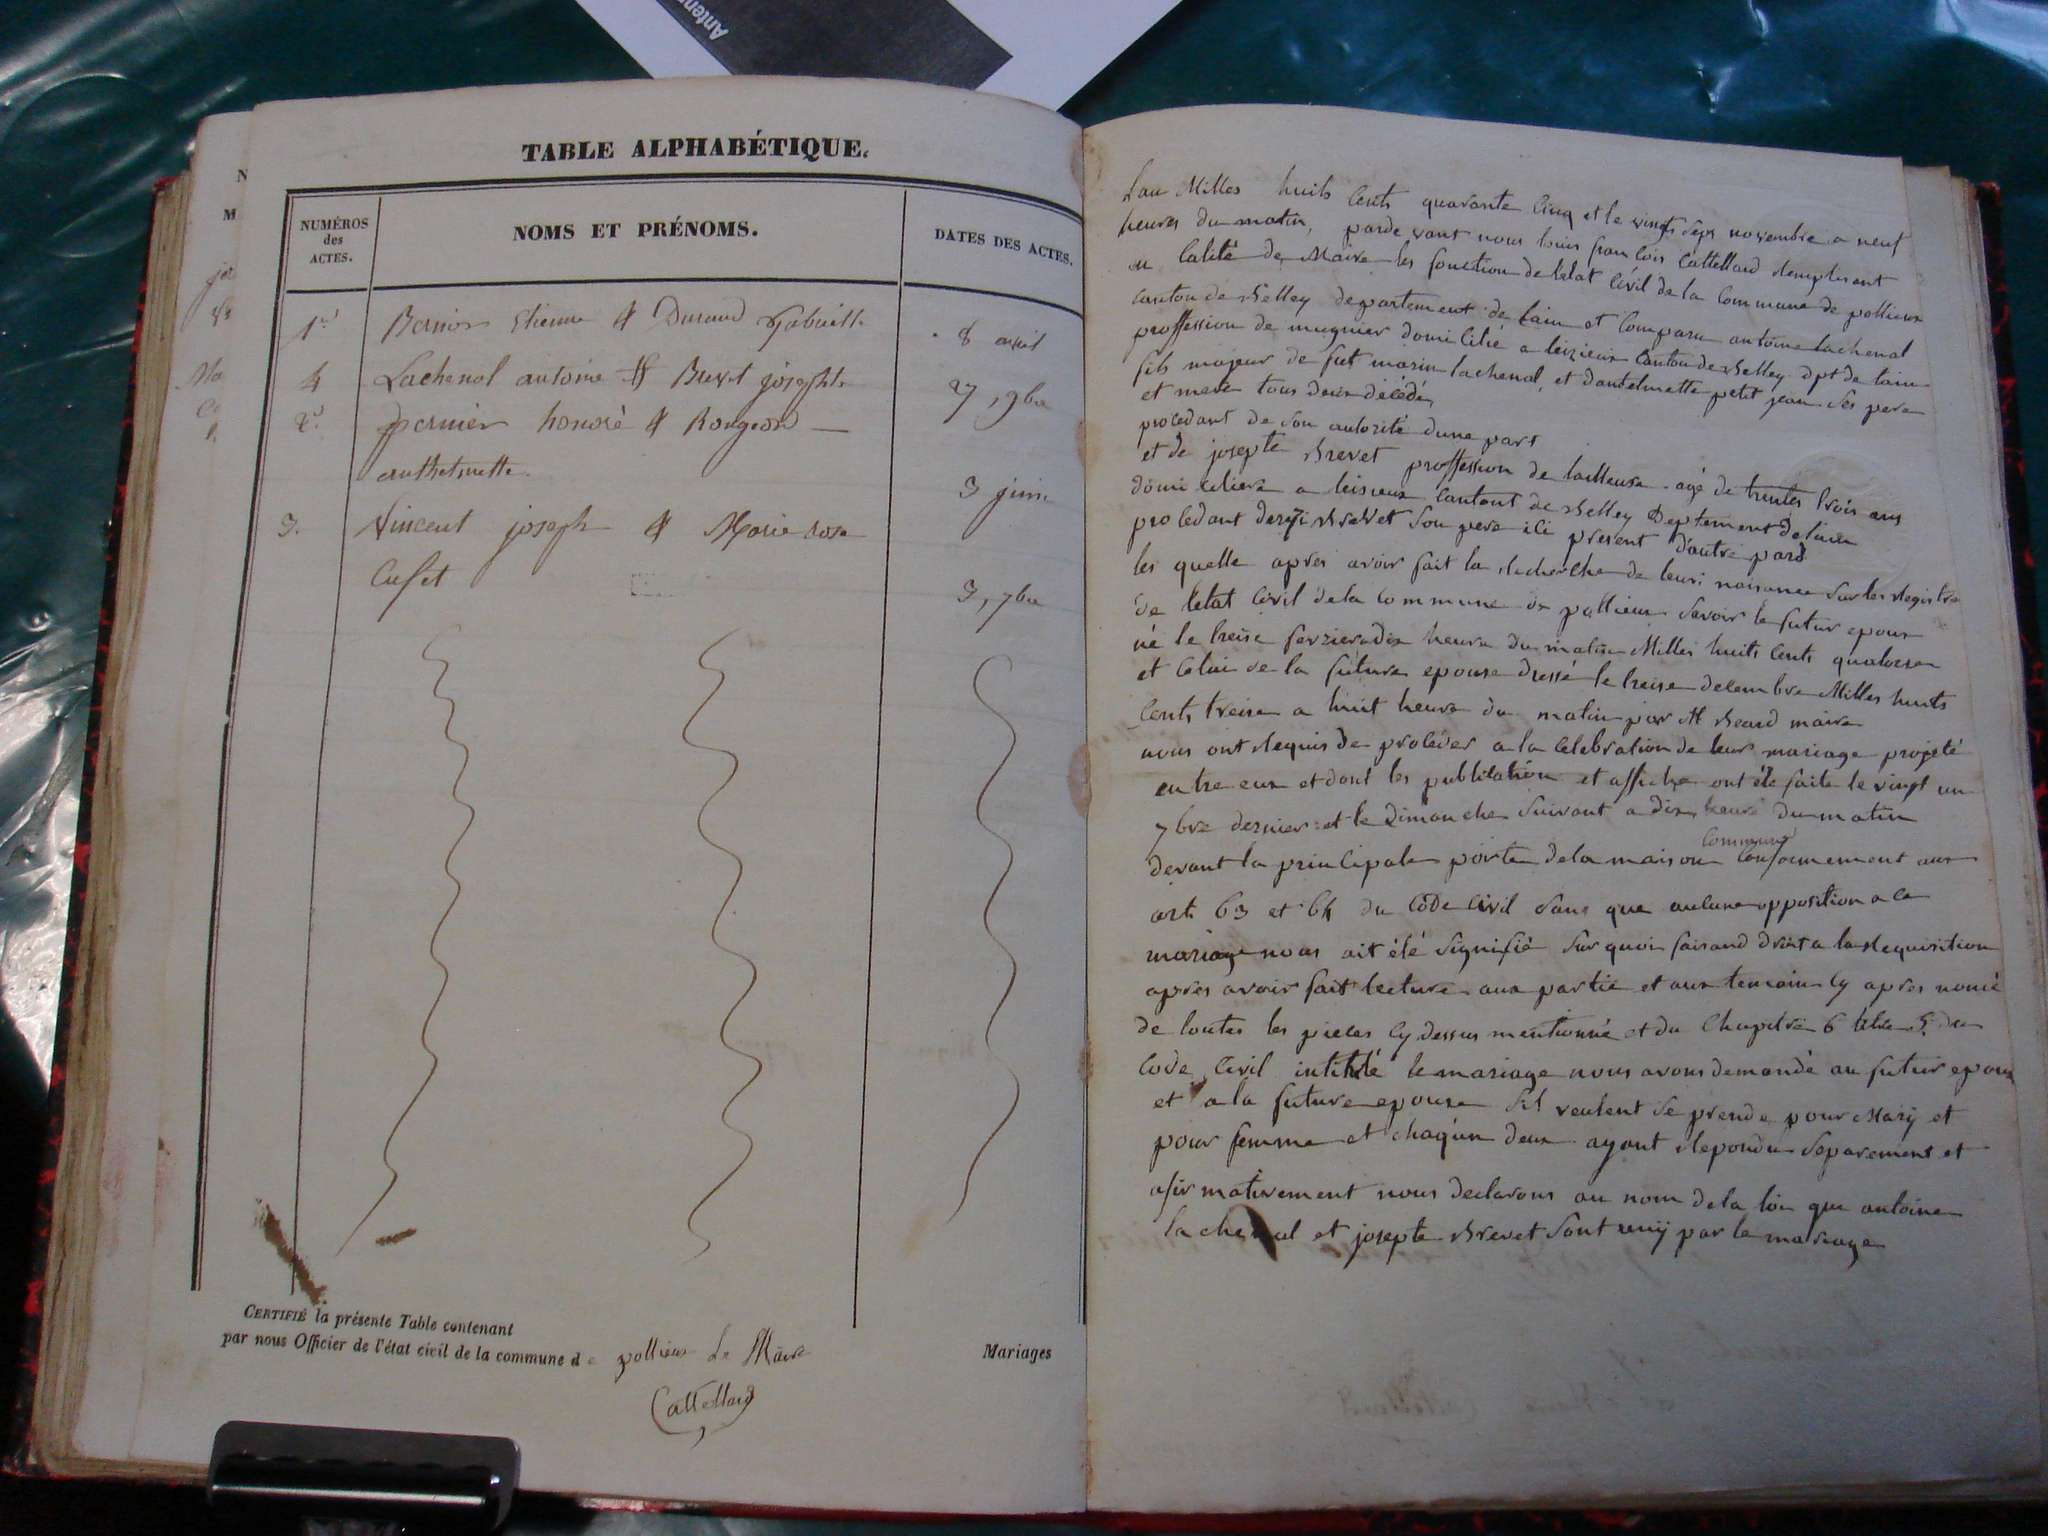 Anten
TABLE ALPHABÉTIQUE.
NUMÉROS
des
ACTES.
NOMS ET PRÉNOMS.
DATES DES ACTES.
1er Bernier Etienne & Durand 8 avril
4 Lachenal antoine & Brevet josephte 27, 9bre
2 honoré & Rougeon
anthelmette 3 juin
3. Vincent joseph & Marie rose
Cuset 3, 7bre
CERTIFIÉ la présente Table contenant
Mariages
par nous Officier de l'état civil de la commune de pollieux Le Maire
Cattelland
Lan Milles huits Cents quarante Cinq et le vingt sept novembre a neuf
heures du matin, parde vant nous louis francois Cattelland Remplisent
en Calité de Maire les fonction de letat Civil de la Commune de pollieux
Canton de Belley departement de lain et Comparu antoine lachenal
proffession de mugnier domicilié a leizieux Canton de Belley dpt de lain
fils majeur de fut marin lachenal, et dantelmette petit jean Ses pere
et mere tous deux décédé,
procedant de Son autorité dune part
et de josepte Brevet proffession de tailleuse agé de trentes trois ans
domiciliera a leisieux Cantont de Belley Deptement de lain
procedant Brevet Son pere ici present d'autre pard
les quelle apres avoir fait la Recherche de leurs naisance Sur les Registre
de letat Civil dela Commune de pollieux Savoir le futur epoux
né le treise fevrier a dix heure du matin Milles huits Cents quatorze
et Celui de la future epouse dressé le treise decembre Milles huits
Cents treise a huit heure du matin par M Beard maire
nous ont Requis de proceder a la Celebration de leur mariage projeté
entre eux et dont les publication et affiche ont été faite le vingt un
7bre dernier et le Dimanche Suivant a dix heure du matin
devant la principale porte dela maison Commune Conformement aux
art 63 et 64 du Code Civil Sans que aucune opposition a ce
mariage nous ait été Signifié Sur quoi faisand droit a la Requisition
apres avoir fait lecture aux partie et aux temoins Cy apres nomé
de toutes les pieces Cy dessus mentionné et du Chapitre 6 titre 5 du
Code Civil intitulé le mariage nous avons demandé au futur epoux
et a la future epouse Sil veulent Se prende pour Mary et
pour femme et chaqun deux ayant Repondu Séparement et
afirmativement nous declarons au nom de la loi que antoine
lachenal et josepte Brevet Sont uny par le mariage